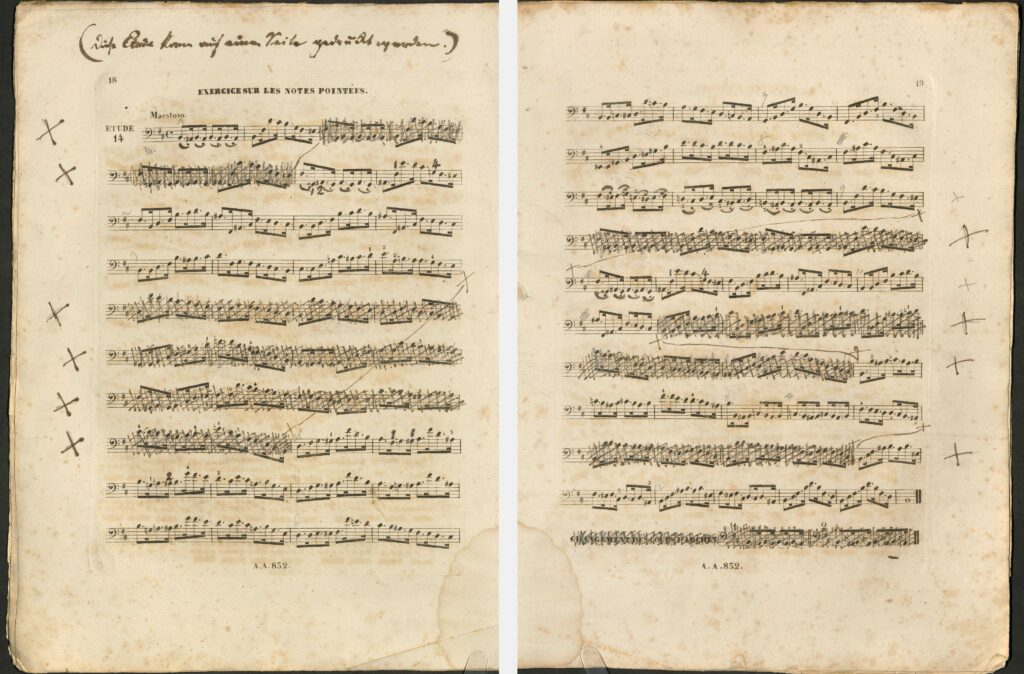 (Diese Etude kann auf einer Seite gedruckt werden.)
18
EXERCICE SUR LES NOTES POINTÉES.
Maestoso.
ETUDE
14
1 4
1 2
A.A.832.
19
1 4
2
A.A.832.